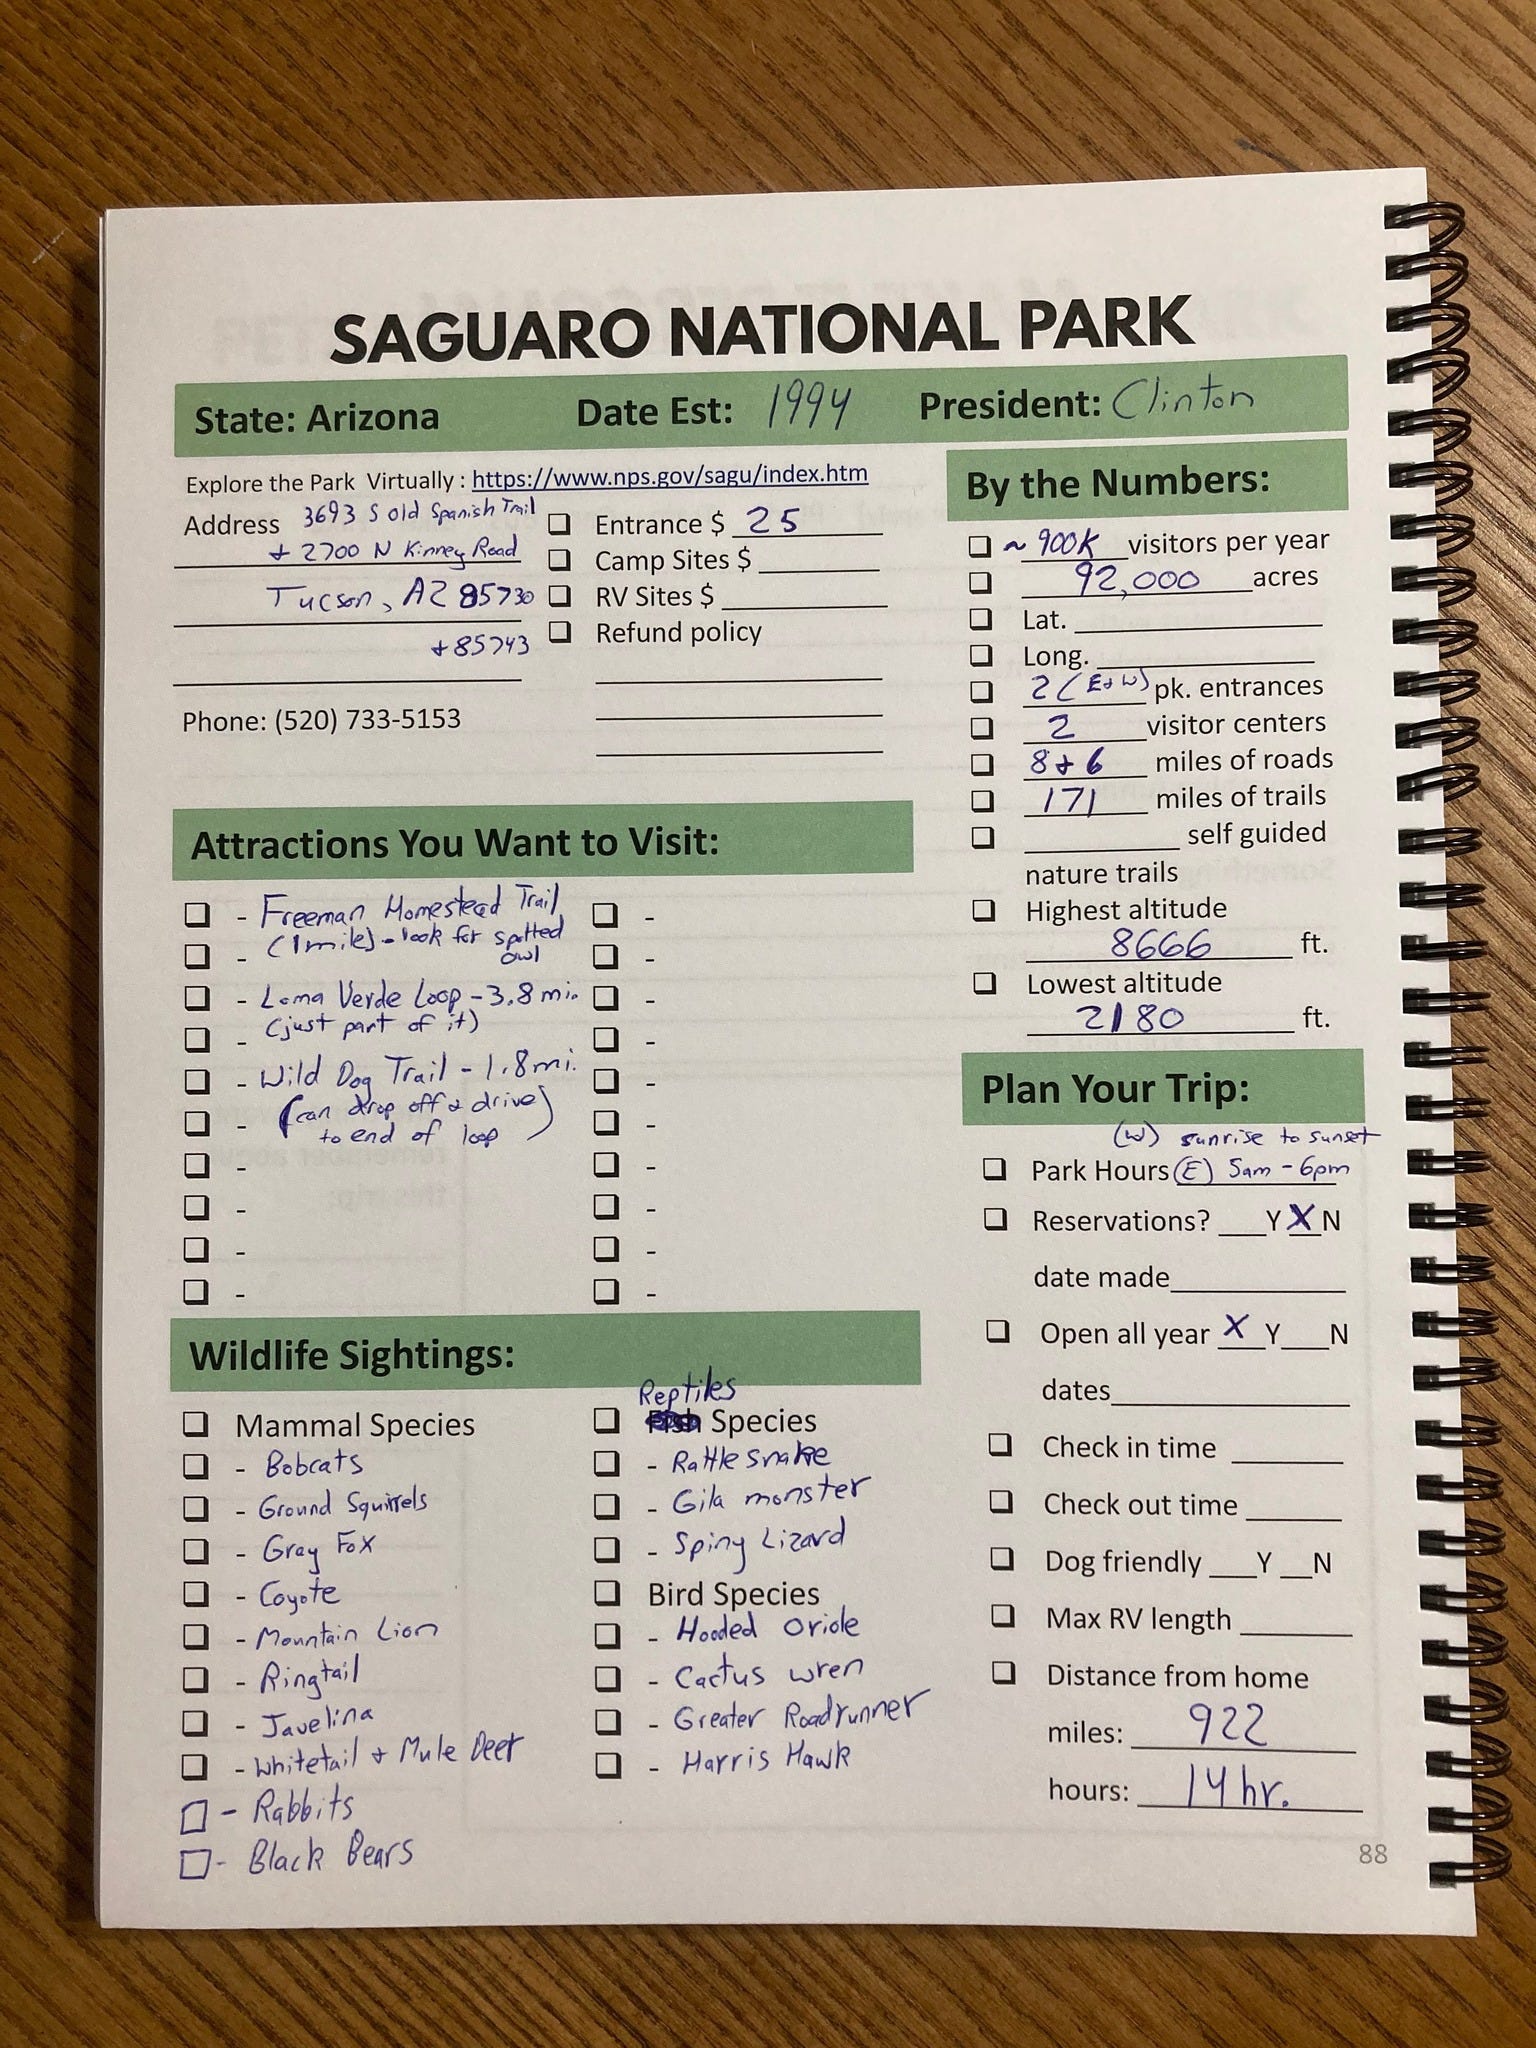 SAGUARO NATIONAL PARK
State: Arizona Date Est: 1994 President: Clinton
Explore the Park Virtually : https://www.nps.gov/sagu/index.htm
Address 3693 S old Spanish Trail
+ 2700 N Kinney Road
Tucson, AZ 85730
+ 85743
Phone: (520) 733-5153
Entrance $ 25
Camp Sites $
RV Sites $
Refund policy
By the Numbers:
~ 900K visitors per year
92,000 acres
Lat.
Long.
2 (E+W) pk. entrances
2 visitor centers
8 + 6 miles of roads
171 miles of trails
self guided
nature trails
Highest altitude
8666 ft.
Lowest altitude
2180 ft.
Attractions You Want to Visit:
- Freeman Homestead Trail
- (1 mile) - look for spotted
owl
- Loma Verde Loop - 3.8 mi.
- (just part of it)
- Wild Dog Trail - 1.8 mi.
- (can drop off & drive)
to end of loop
-
-
-
-
-
-
-
-
-
-
-
-
-
-
Plan Your Trip:
(W) sunrise to sunset
Park Hours (E) 5am - 6pm
Reservations? Y X N
date made
Open all year X Y N
dates
Check in time
Check out time
Dog friendly Y N
Max RV length
Distance from home
miles: 922
hours: 14 hr.
Wildlife Sightings:
Mammal Species
- Bobcats
- Ground Squirrels
- Gray Fox
- Coyote
- Mountain Lion
- Ringtail
- Javelina
- Whitetail + Mule Deer
- Rabbits
- Black Bears
Reptiles
Fish Species
- Rattlesnake
- Gila monster
- Spiny Lizard
Bird Species
- Hooded Oriole
- Cactus wren
- Greater Roadrunner
- Harris Hawk
88